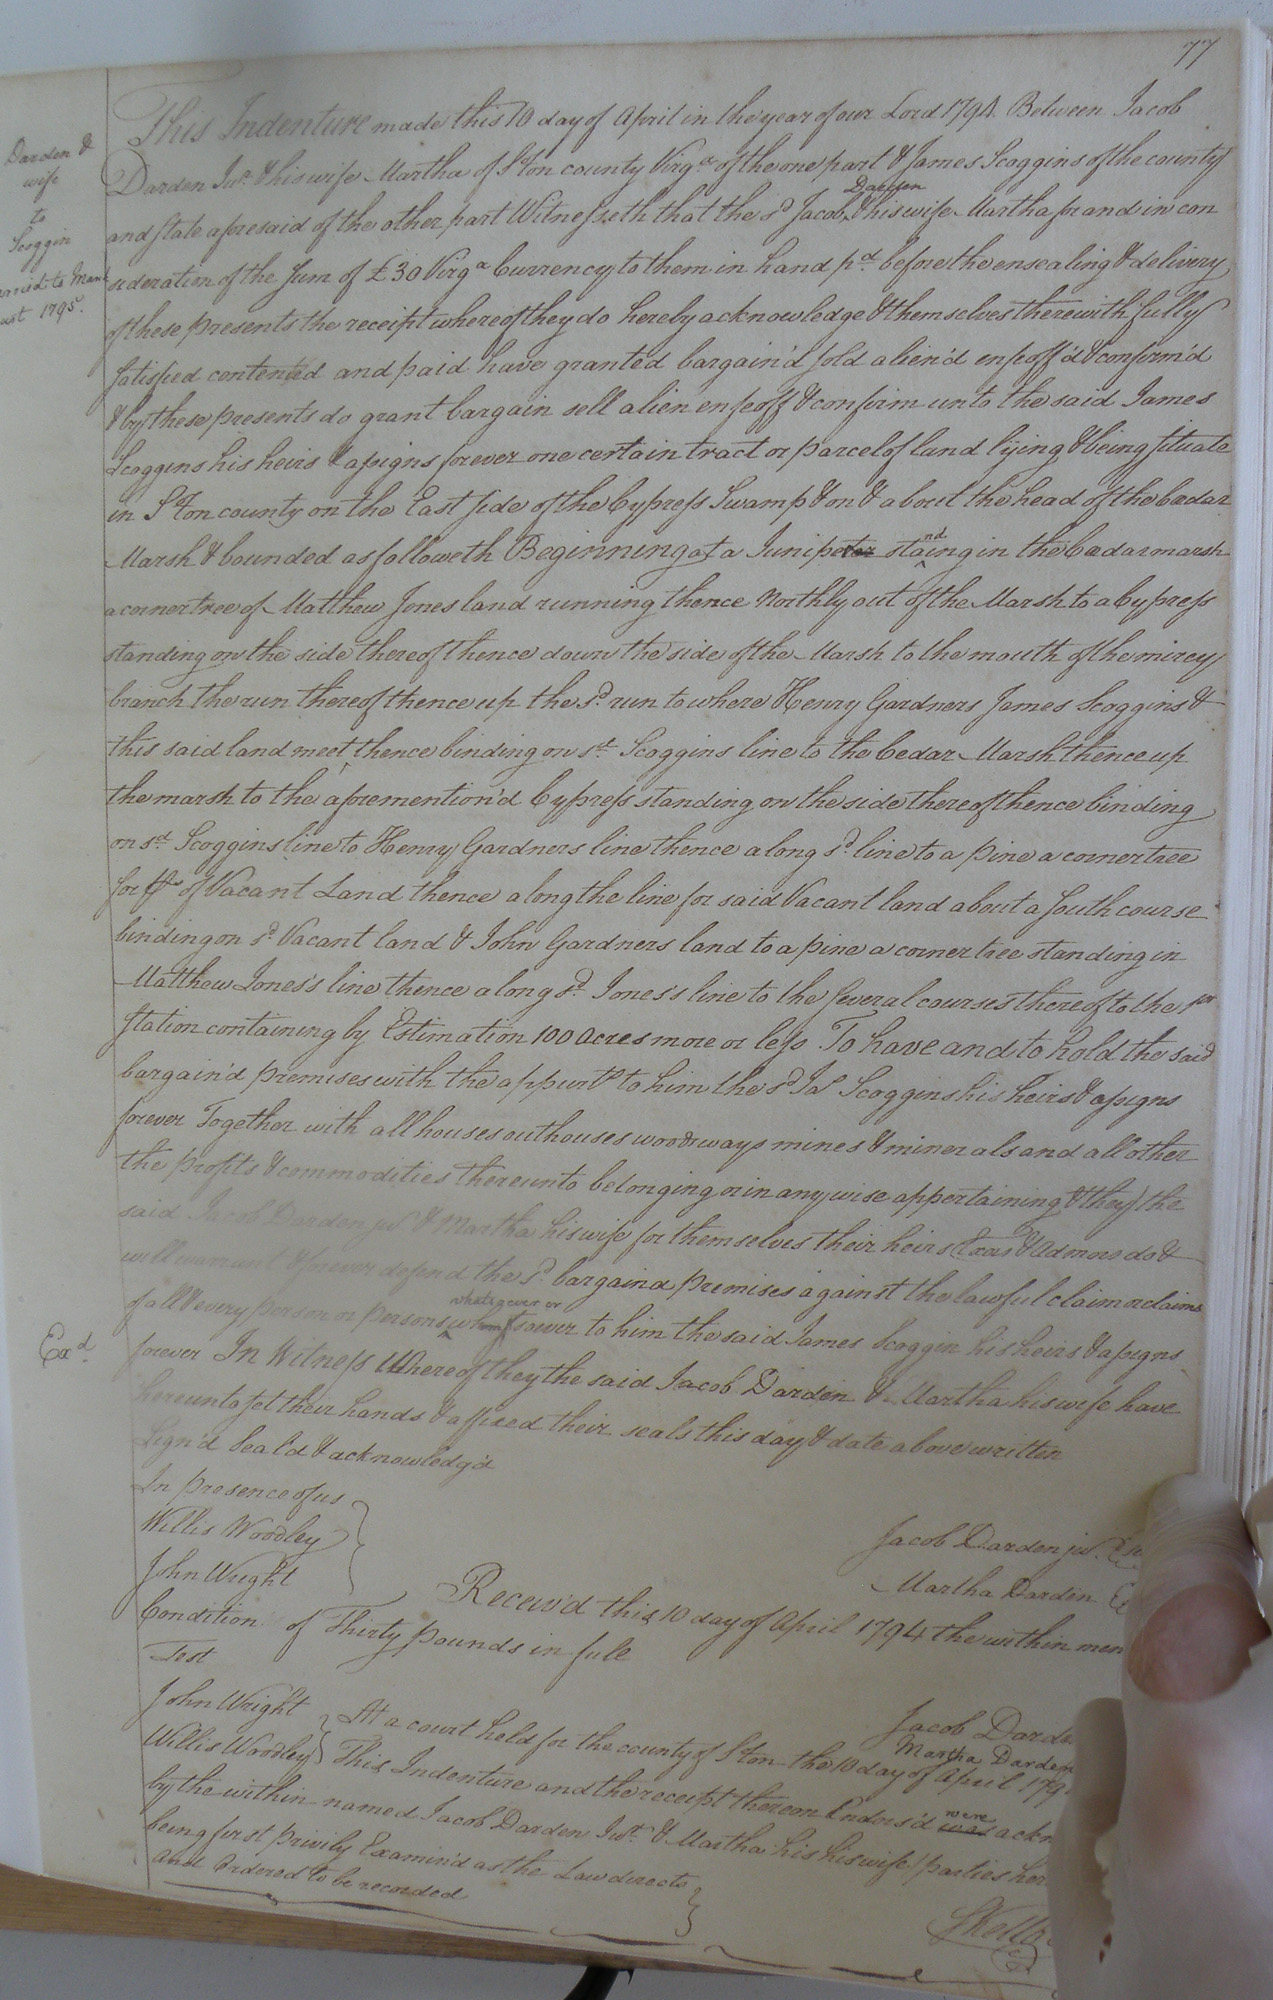 77
Darden &
wife
to
Scoggin
to
1795
This Indenture made this 10 day of April in the year of our Lord 1794 Between Jacob
Darden Junr. & his wife Martha of S'ton county Virga. of the one part & James Scoggins of the county
and state aforesaid of the other part Witnesseth that the sd. Jacob Darden & his wife Martha for and in con
sideration of the sum of £30 Virga. Currency to them in hand pd. before the ensealing & delivery
of these presents the receipt whereof they do hereby acknowledge & themselves therewith fully
satisfied contented and paid have granted bargain'd sold alien'd enfeoff'd & confirm'd
& by these presents do grant bargain sell alien enfeoff & confirm unto the said James
Scoggins his heirs & assigns forever one certain tract or parcel of land lying & being situate
in S'ton county on the East side of the Cypress Swamp & on & about the head of the Cædar
Marsh & bounded as followeth Beginning at a Juniper standing in the Cædar marsh
a corner tree of Matthew Jones land running thence Northly out of the Marsh to a Cypress
standing on the side thereof thence down the side of the Marsh to the mouth of the mirey
branch the run thereof thence up the sd. run to where Henry Gardners James Scoggins &
this said land meet thence binding on sd. Scoggins line to the Cedar Marsh thence up
the marsh to the aforemention'd Cypress standing on the side thereof thence binding
on sd. Scoggins line to Henry Gardners line thence along sd. line to a pine a corner tree
for of Vacant Land thence along the line for said Vacant land about a South course
binding on sd. Vacant land & John Gardners land to a pine a corner tree standing in
Matthew Jones's line thence along sd. Jones's line to the several courses thereof to the
station containing by Estimation 100 Acres more or less To have and to hold the said
bargain'd premises with the appurts. to him the sd. Jas. Scoggins his heirs & assigns
forever Together with all houses outhouses woods ways mines & minerals and all other
the profits & commodities thereunto belonging or in any wise appertaining & they the
said Jacob Darden jur. & Martha his wife for themselves their heirs Exors & Admors do &
will warrant & forever defend the sd. bargaind premises against the lawful claim or claims
of all & every person or persons whatsoever or whomsoever to him the said James Scoggin his heirs & assigns
Exd.
forever In Witness Whereof they the said Jacob Darden & Martha his wife have
hereunto set their hands & affixed their seals this day & date above written
Sign'd Seal'd & acknowledg'd
In presence of us
Willis Woodley
John Wright
Jacob Darden jur.
Martha Darden
Receiv'd this 10 day of April 1794 the within men
Condition of Thirty pounds in full
Test
John Wright
Willis Woodley
Jacob Dard
Martha Darden
At a court held for the county of S'ton the 10 day of April 179
This Indenture and the receipt thereon Endors'd were ackn
by the within named Jacob Darden Junr. & Martha his his wife parties her
being first privily Examin'd as the Law directs
and Ordered to be recorded